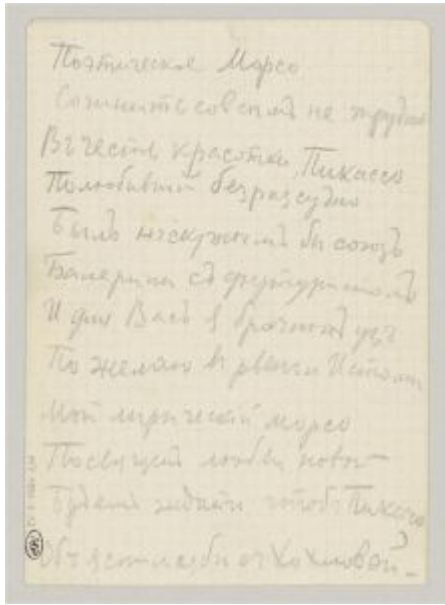 Поэтическое Марсо
Сочинить совсемъ не трудно
Въ честь красотки, Пикассо
Полюбившей безразсудно
Былъ нескучнымъ бы союзъ
Балерины съ футуристомъ
И для Васъ я брачныхъ узъ
Пожелаю
Мой лирическій морсо
Посвященъ любви новой
Будемъ ждать чтобъ Пикассо
Объяснился бы съ Хохловой